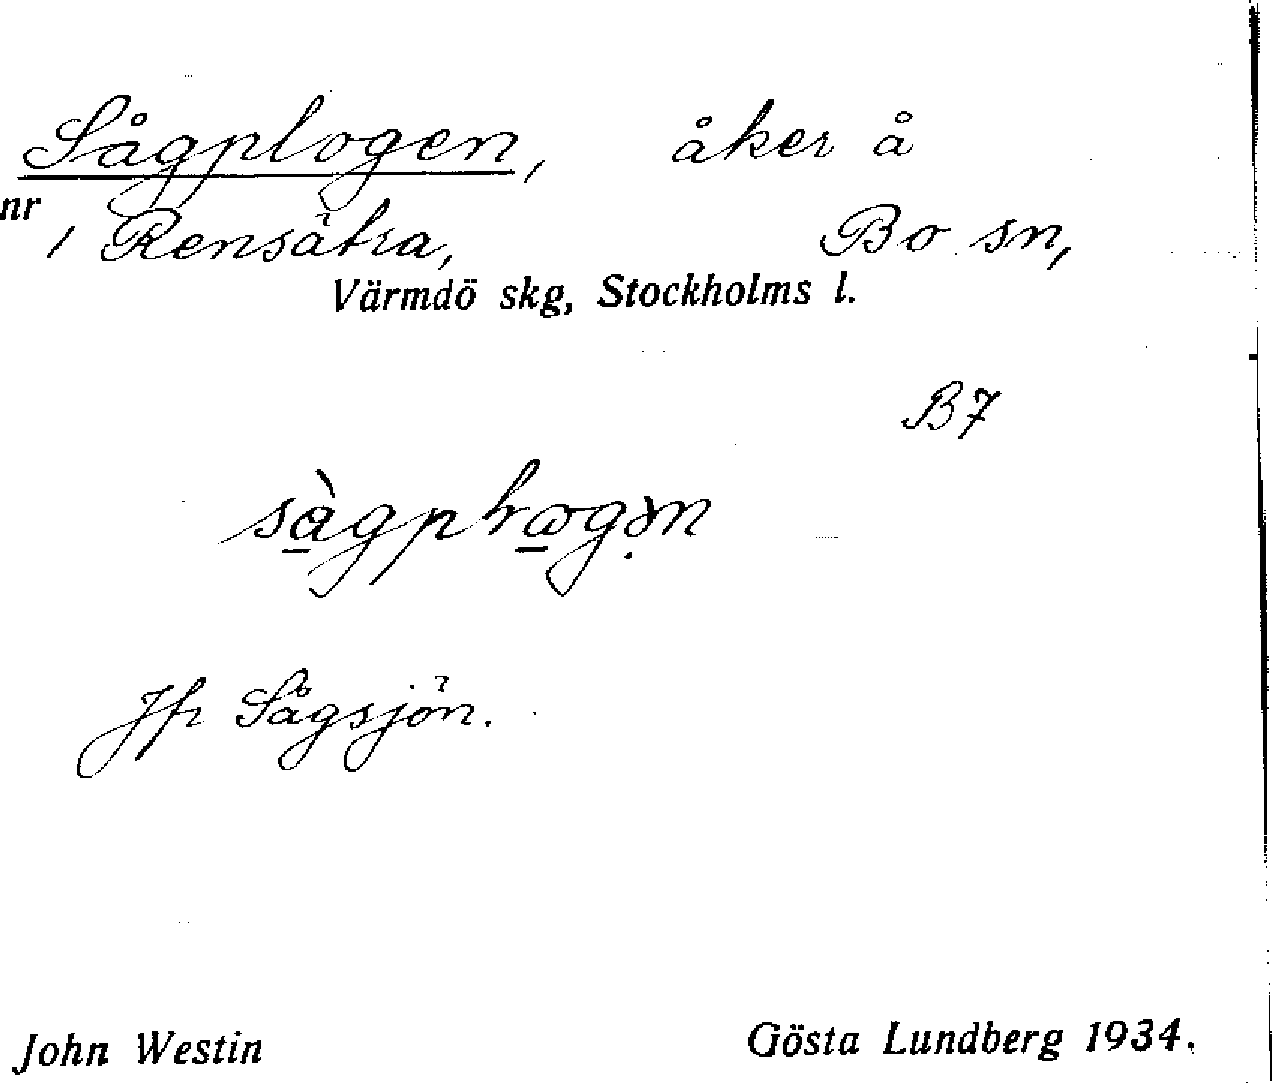 Sågplogen, åker å
nr 1 Rensätra, Bo sn,
Värmdö skg, Stockholms l.
B7
Jfr Sågsjön.
John Westin Gösta Lundberg 1934.